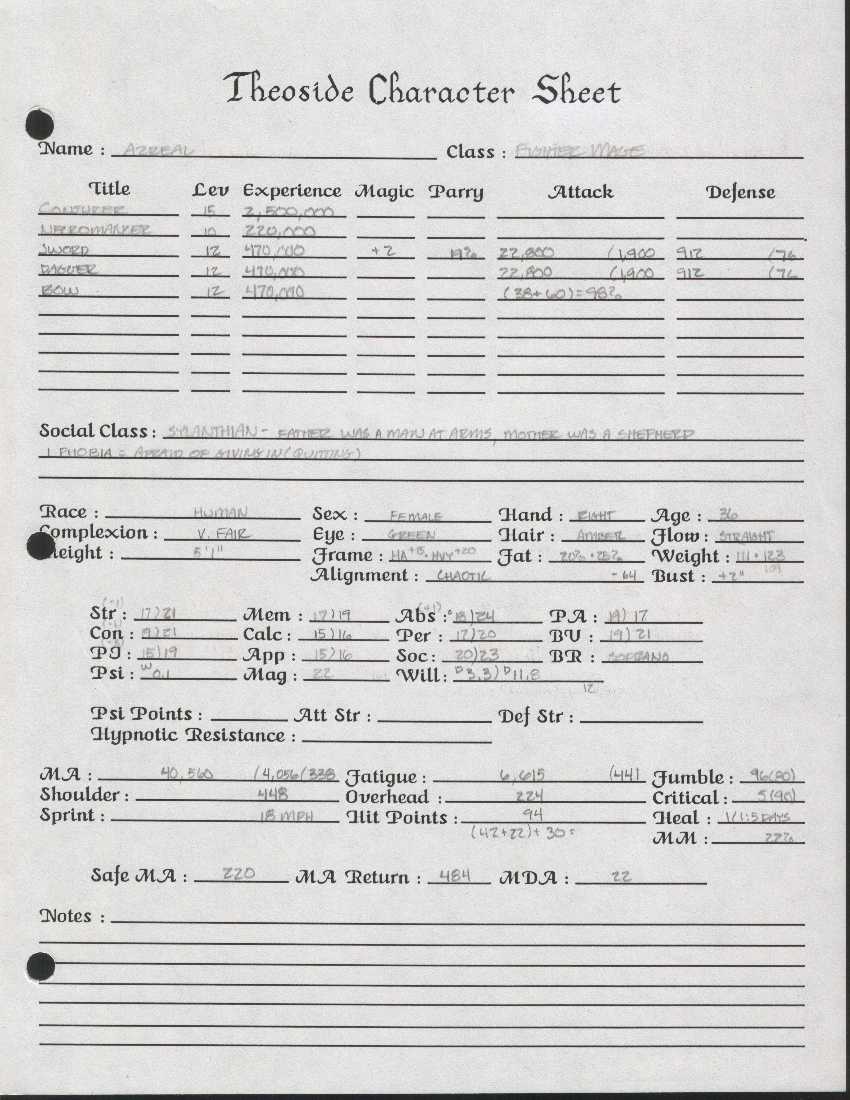 Theoside Character Sheet
Name : AZREAL Class : FIGHTER MAGE
Title Lev Experience Magic Parry Attack Defense
CONJURER 15 2,500,000
NECROMANCER 10 220,000
SWORD 12 470,000 +2 19% 22,800 (1,900 912 (76
DAGGER 12 470,000 22,800 (1,900 912 (76
BOW 12 470,000 (38+60)=98%
Social Class : SYLANTHIAN - FATHER WAS A MAN AT ARMS, MOTHER WAS A SHEPHERD
1 PHOBIA = AFRAID OF GIVING IN (QUITTING)
Race : HUMAN Sex : FEMALE Hand : RIGHT Age : 36
Complexion : V. FAIR Eye : GREEN Hair : AMBER Flow : STRAIGHT
Height : 5'1" Frame : HVY +20 Fat : 20% Weight : 111 · 123
Alignment : CHAOTIC -64 Bust : +2"
Str : 17)21 Mem : 17)19 Abs : 18)24 PA : 19) 17
Con : 21 Calc : 15)16 Per : 17)20 BV : 19) 21
PJ : 15)19 App : 15)16 Soc : 20)23 BR : SOPRANO
Psi : 0.1 Mag : 22 Will : D3,3) D11,8
12
Psi Points : Att Str : Def Str :
Hypnotic Resistance :
MA : 40,560 (4,056(338 Fatigue : 6,615 (441 Fumble : 96(80)
Shoulder : 448 Overhead : 224 Critical : 5(90)
Sprint : 18 MPH Hit Points : 94 Heal : 1/1.5 DAYS
(42+22)+30= MM : 22%
Safe MA : 220 MA Return : 484 MDA : 22
Notes :